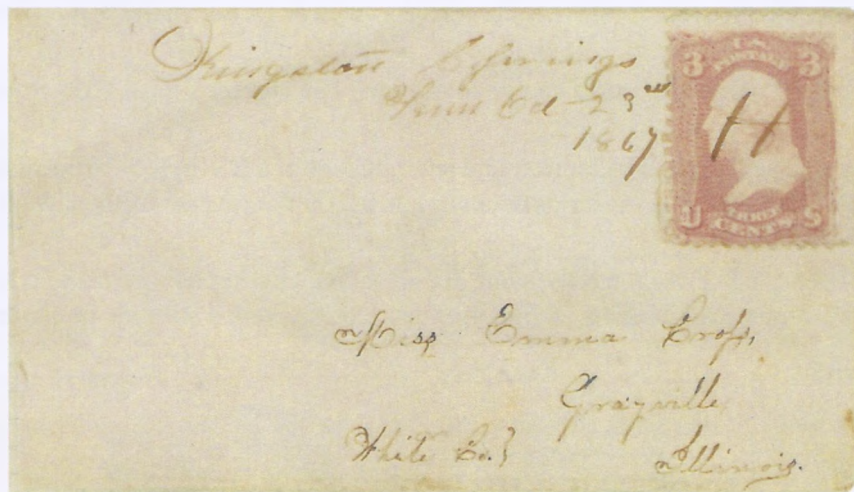 Kingston Springs
Tenn Oct 23rd
1867
U.S.
POSTAGE
3 3
U THREE S
CENTS
Miss Emma Cross,
Grayville
White Co.}
Illinois.